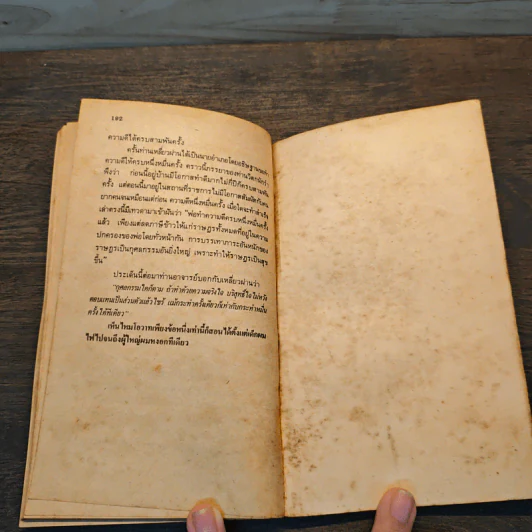 192
ความดีได้ครบสามพันครั้ง
ครั้นท่านเหลี่ยวฝานได้เป็นนายอำเภอโดยอธิษฐานขอทำ
ความดีให้ครบหนึ่งหมื่นครั้ง คราวนี้ภรรยาของท่านวิตกหนักรำ
พึงว่า ก่อนนี้อยู่บ้านมีโอกาสทำดีมากไม่กี่ปีก็ครบสามพัน
ครั้ง แต่ตอนนี้มาอยู่ในสถานที่ราชการไม่มีโอกาสสัมผัสกับคน
ยากคนจนเหมือนแต่ก่อน ความดีหนึ่งหมื่นครั้ง เมื่อใดจะทำสำเร็จ
เล่าตรงนี้มีเทวดามาเข้าฝันว่า "พ่อทำความดีครบหนึ่งหมื่น
แล้ว เพียงแต่ลดภาษีข้าวให้แก่ราษฎรทั้งหมดที่อยู่ในความ
ปกครองของพ่อโดยทั่วหน้ากัน การบรรเทาภาระอันหนักของ
ราษฎรเป็นกุศลกรรมอันยิ่งใหญ่ เพราะทำให้ราษฎรเป็นสุข
ขึ้น"
ประเด็นนี้ต่อมาท่านอาจารย์บอกกับเหลี่ยวฝานว่า
"กุศลกรรมใดก็ตาม ถ้าทำด้วยความจริงใจ บริสุทธิ์ใจไม่หวัง
ตอบแทนเป็นส่วนตัวแล้วไซร้ แม้กระทำครั้งเดียวก็เท่ากับกระทำหมื่น
ครั้งได้ทีเดียว"
เห็นไหมโอวาทเพียงข้อหนึ่งเท่านี้ก็สอนได้ตั้งแต่เด็กผม
ไฟไปจนถึงผู้ใหญ่ผมหงอกทีเดียว